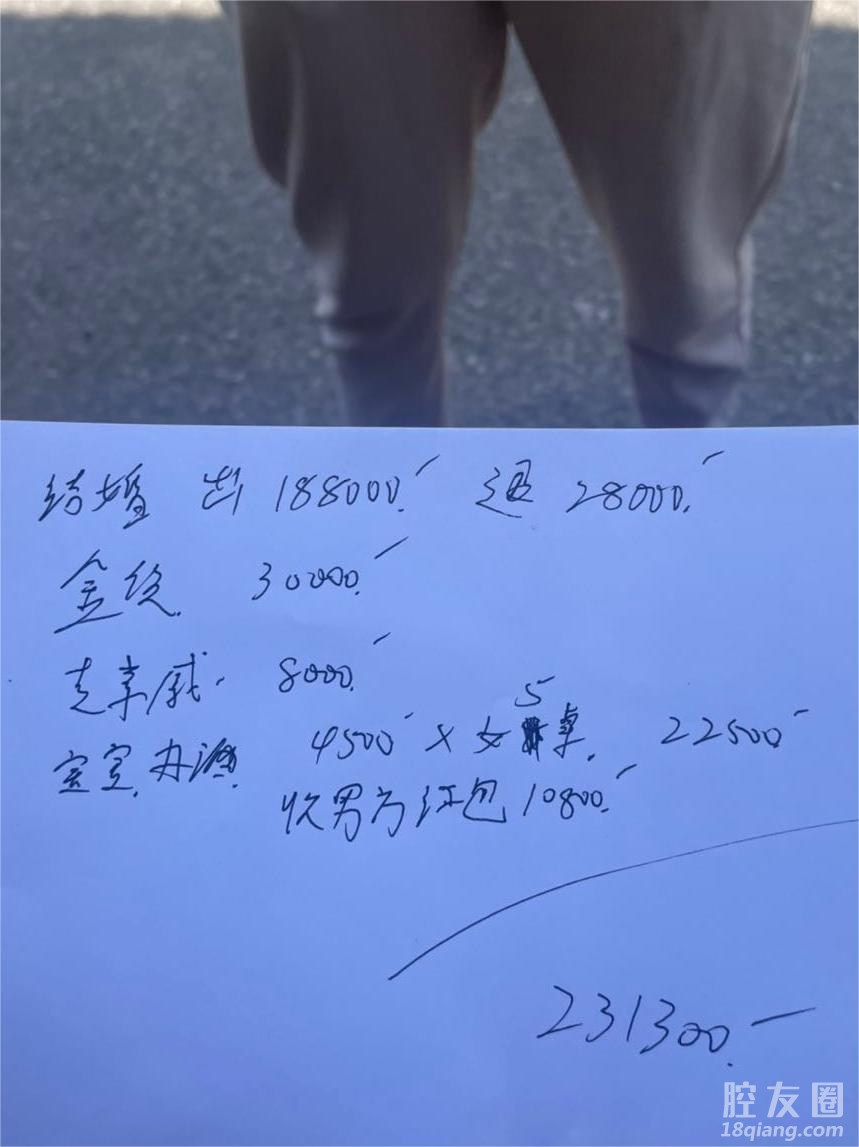 结婚 出 188000. 退 28000.
金条. 30000.
走亲戚. 8000.
宝宝. 办酒. 4500 × 女 5 桌. 22500
收男方红包 10800.
231300.
腔友圈
18qiang.com